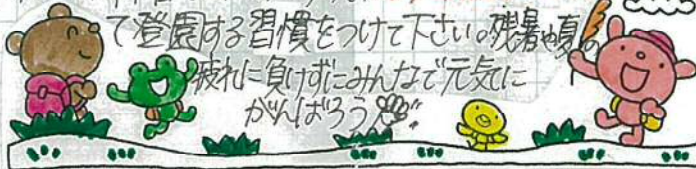 て登園する習慣をつけて下さい。残暑や夏の
疲れに負けずにみんなで元気に
がんばろう